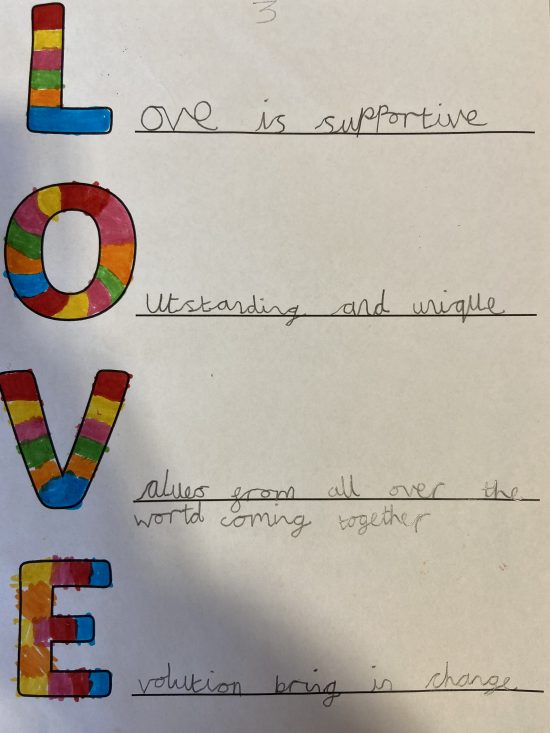 3
Love is supportive
Outstanding and unique
Values from all over the
world coming together
Evolution bring in change